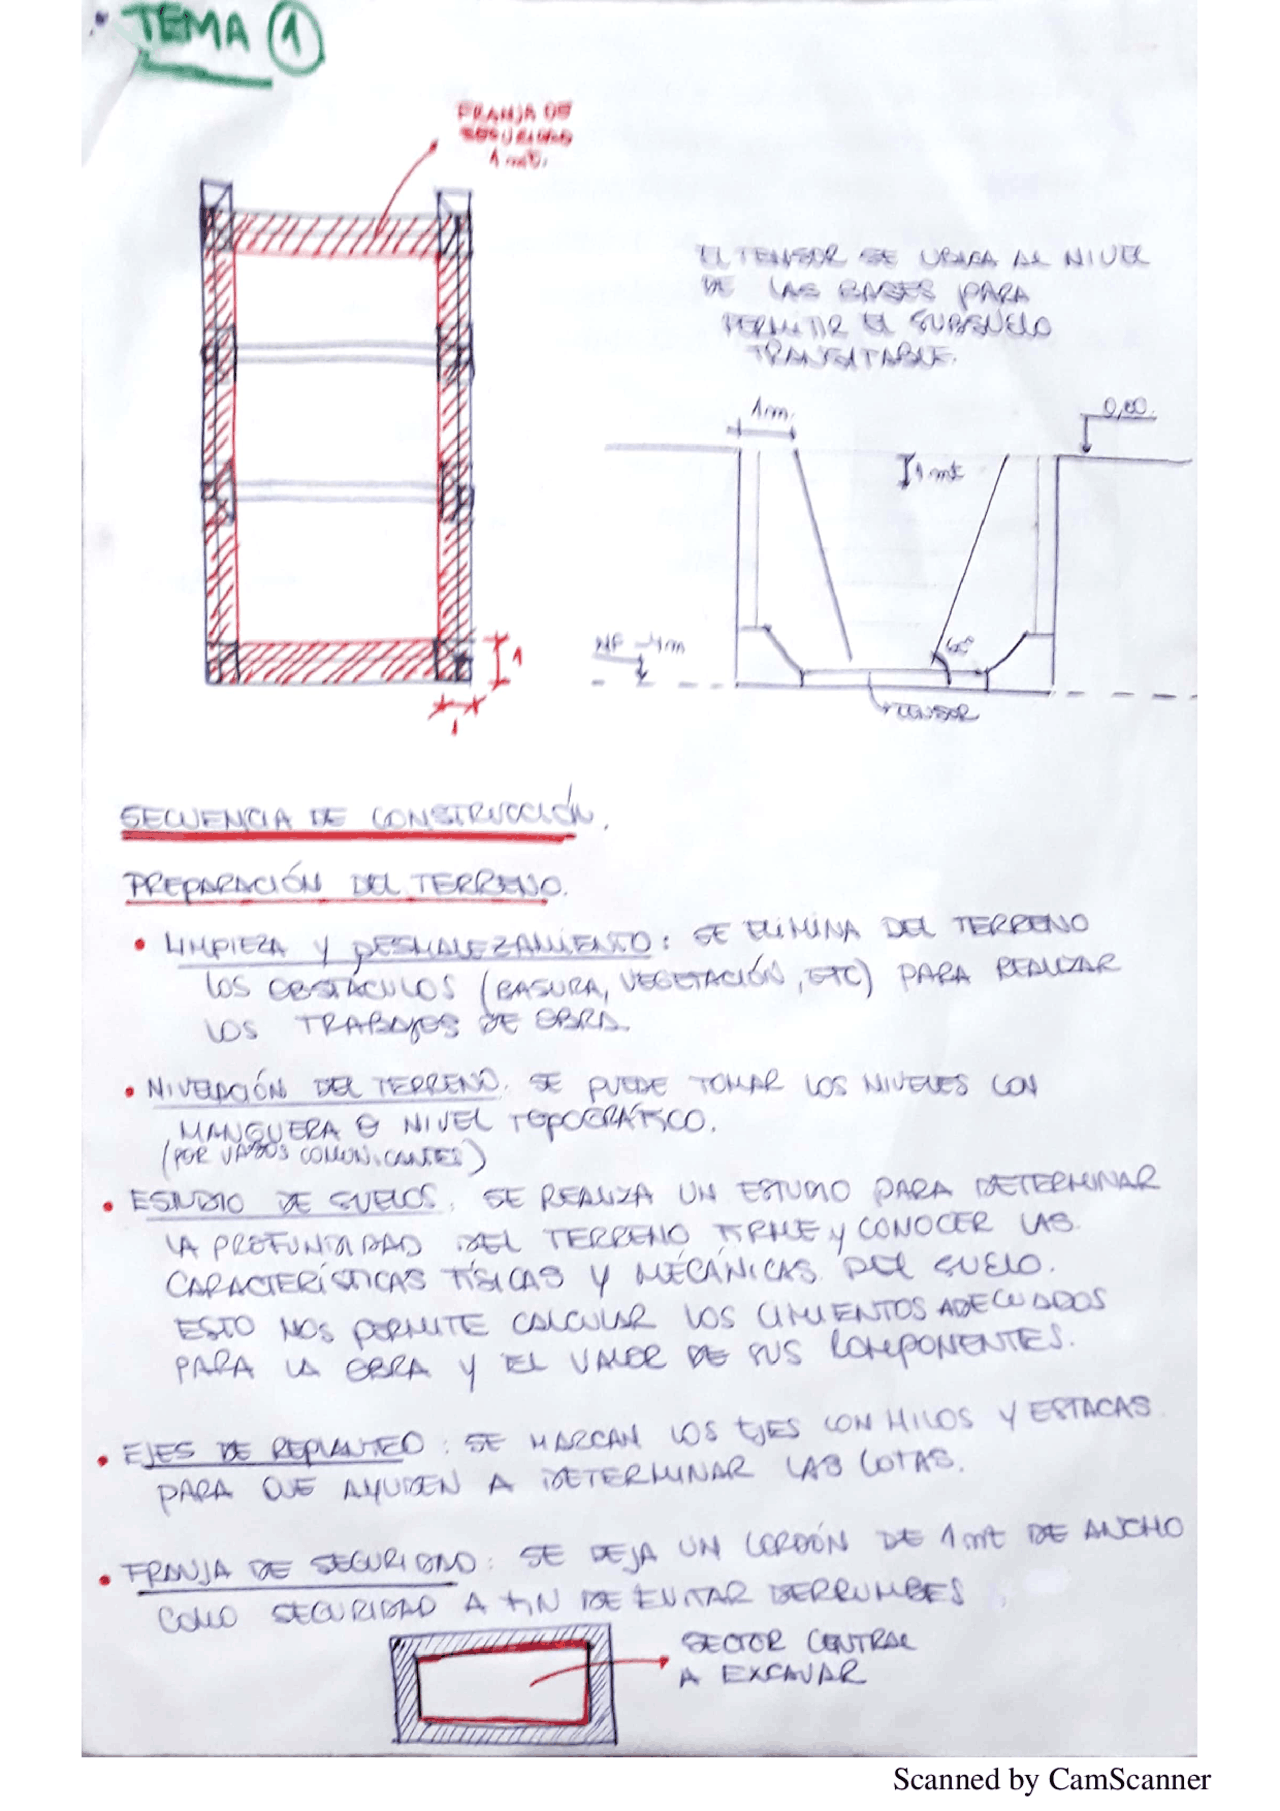 TEMA 1
FRANJA DE
SEGURIDAD
1 mt.
EL TENSOR SE UBICA AL NIVEL
DE LAS BASES PARA
PERMITIR EL SUBSUELO
TRANSITABLE.
1m.
0,00.
1 mt
NF -4m
60°
TENSOR
1
1
SECUENCIA DE CONSTRUCCIÓN.
PREPARACIÓN DEL TERRENO.
• LIMPIEZA Y DESMALEZAMIENTO: SE ELIMINA DEL TERRENO
LOS OBSTÁCULOS (BASURA, VEGETACIÓN, ETC) PARA REALIZAR
LOS TRABAJOS DE OBRA.
• NIVELACIÓN DEL TERRENO. SE PUEDE TOMAR LOS NIVELES CON
MANGUERA O NIVEL TOPOGRÁFICO.
(POR VASOS COMUNICANTES)
• ESTUDIO DE SUELOS. SE REALIZA UN ESTUDIO PARA DETERMINAR
LA PROFUNDIDAD DEL TERRENO FIRME Y CONOCER LAS
CARACTERÍSTICAS FÍSICAS Y MECÁNICAS DEL SUELO.
ESTO NOS PERMITE CALCULAR LOS CIMIENTOS ADECUADOS
PARA LA OBRA Y EL VALOR DE SUS COMPONENTES.
• EJES DE REPLANTEO: SE MARCAN LOS EJES CON HILOS Y ESTACAS
PARA QUE AYUDEN A DETERMINAR LAS COTAS.
• FRANJA DE SEGURIDAD: SE DEJA UN CORDÓN DE 1 mt DE ANCHO
COMO SEGURIDAD A FIN DE EVITAR DERRUMBES
SECTOR CENTRAL
A EXCAVAR
Scanned by CamScanner